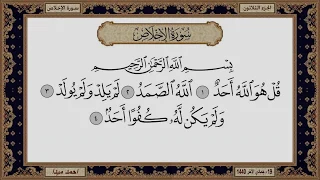 سورة الإخلاص
الجزء الثلاثون
سُورَةُ الإِخْلَاصِ
بِسْمِ اللَّهِ الرَّحْمَٰنِ الرَّحِيمِ
قُلْ هُوَ اللَّهُ أَحَدٌ ١ اللَّهُ الصَّمَدُ ٢ لَمْ يَلِدْ وَلَمْ يُولَدْ ٣
وَلَمْ يَكُن لَّهُ كُفُوًا أَحَدٌ ٤
1440